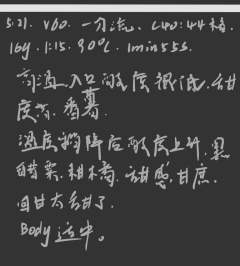 5.21. V60. 一刀流. C40:44格.
16g. 1:15. 90℃. 1min55s.
高温入口酸度很低. 甜
度高. 番薯.
温度稍降后酸度上升. 黑
醋栗. 柑橘. 甜感. 甘蔗.
回甘太甜了.
Body适中。